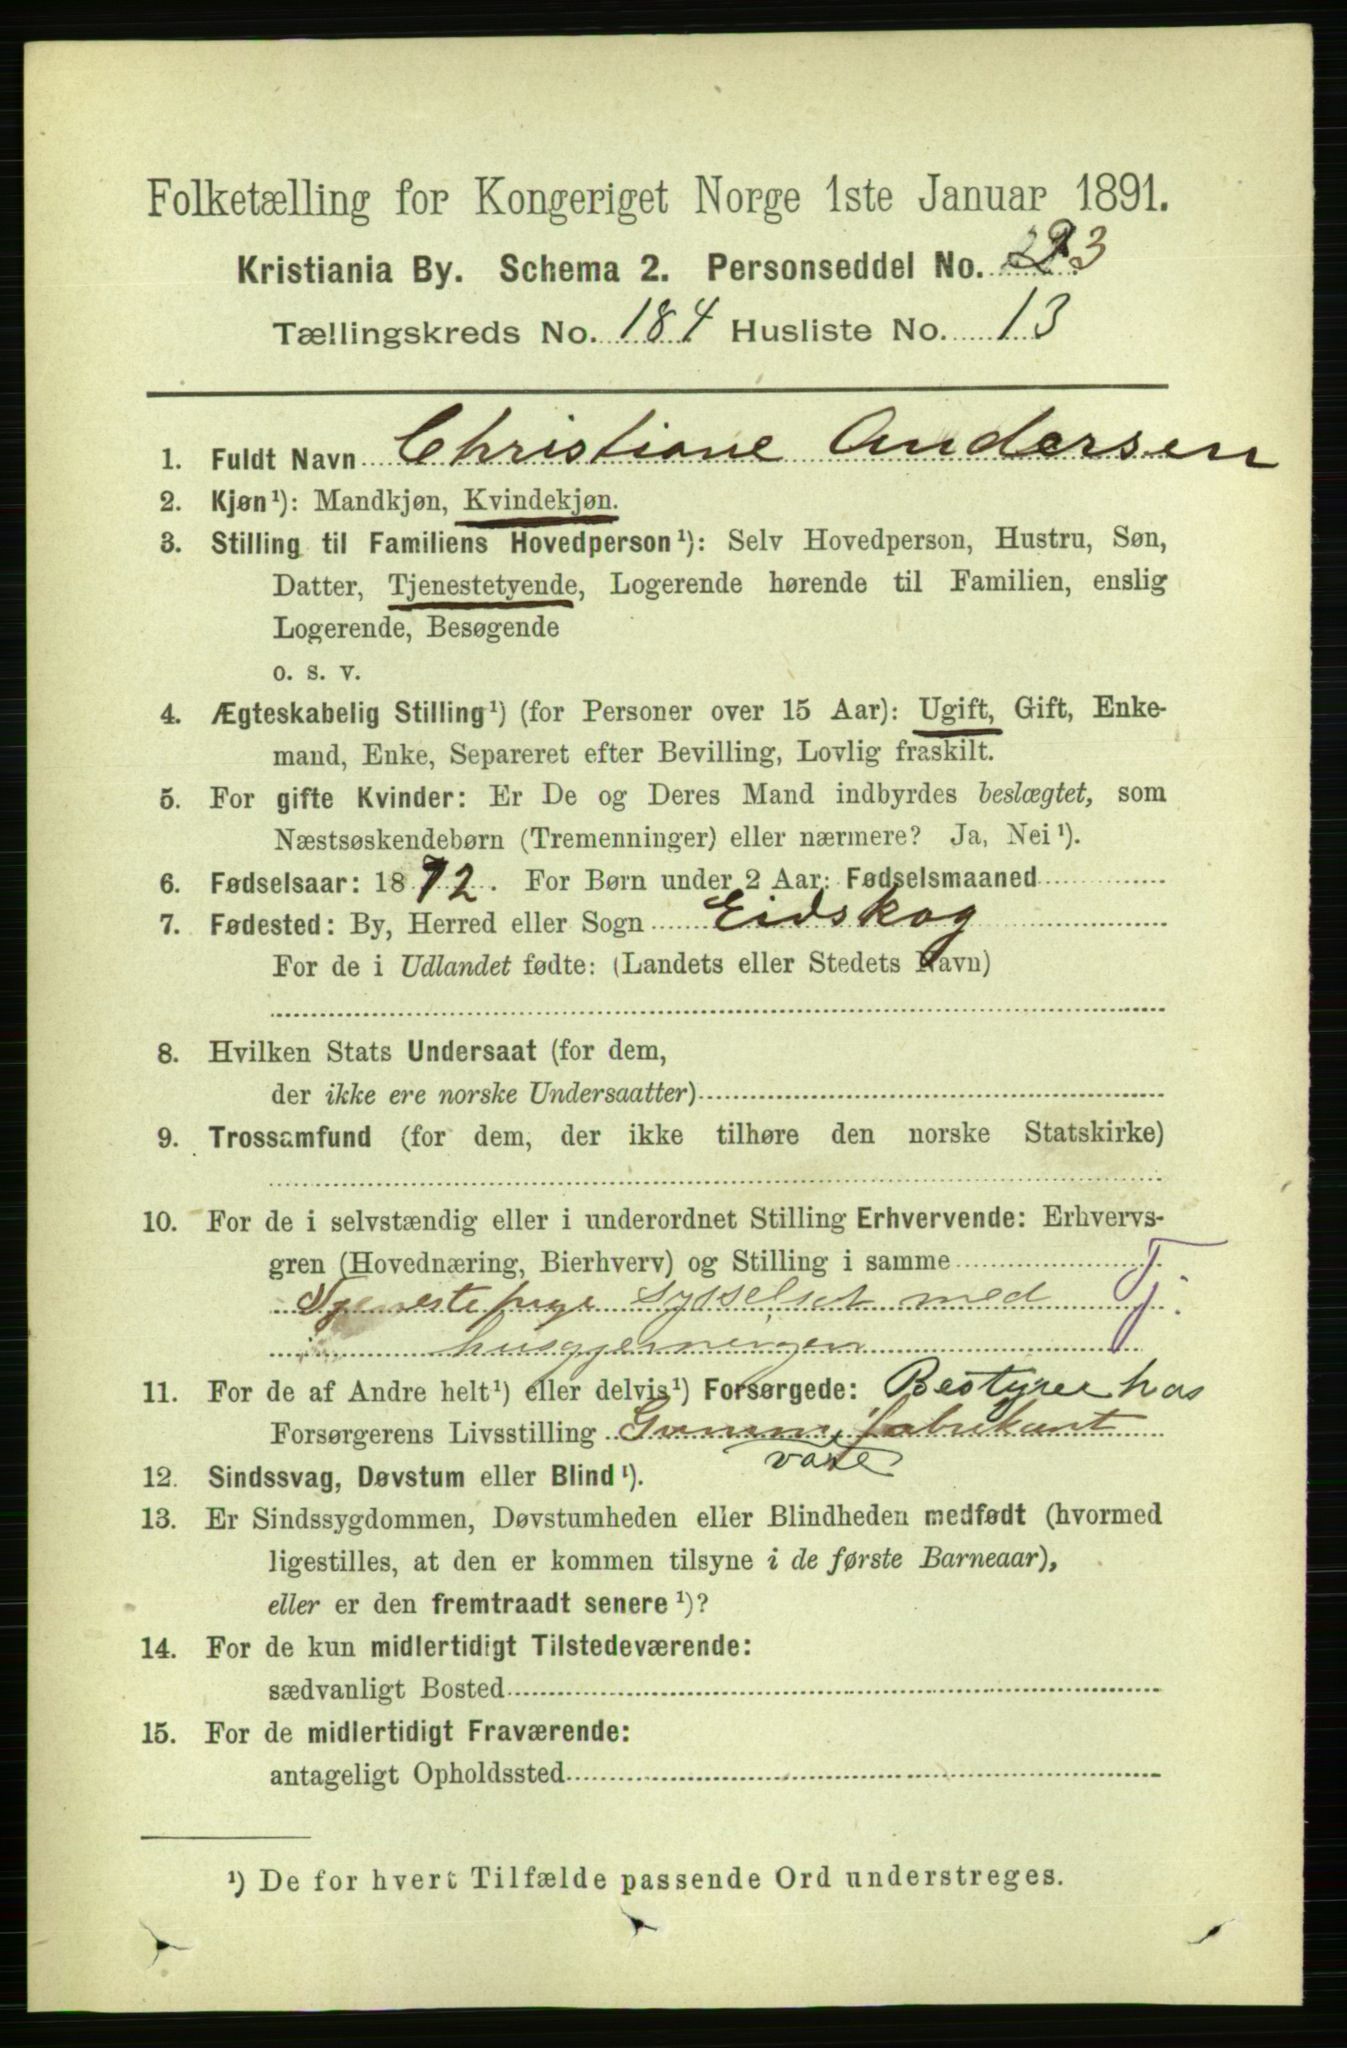 Folketælling for Kongeriget Norge 1ste Januar 1891.
Kristiania By. Schema 2. Personseddel No. 223
Tællingskreds No. 184 Husliste No. 13
1. Fuldt Navn Christiane Andersen
2. Kjøn¹): Mandkjøn, Kvindekjøn.
3. Stilling til Familiens Hovedperson¹): Selv Hovedperson, Hustru, Søn,
Datter, Tjenestetyende, Logerende hørende til Familien, enslig
Logerende, Besøgende
o. s. v.
4. Ægteskabelig Stilling¹) (for Personer over 15 Aar): Ugift, Gift, Enke-
mand, Enke, Separeret efter Bevilling, Lovlig fraskilt.
5. For gifte Kvinder: Er De og Deres Mand indbyrdes beslægtet, som
Næstsøskendebørn (Tremenninger) eller nærmere? Ja, Nei¹).
6. Fødselsaar: 1872. For Børn under 2 Aar: Fødselsmaaned
7. Fødested: By, Herred eller Sogn Eidskog
For de i Udlandet fødte: (Landets eller Stedets Navn)
8. Hvilken Stats Undersaat (for dem,
der ikke ere norske Undersaatter)
9. Trossamfund (for dem, der ikke tilhøre den norske Statskirke)
10. For de i selvstændig eller i underordnet Stilling Erhvervende: Erhvervs-
gren (Hovednæring, Bierhverv) og Stilling i samme
Tjenestepige sysselsat med Tj.
husgjerningen
11. For de af Andre helt¹) eller delvis¹) Forsørgede: Bestyrer hos
Forsørgerens Livsstilling Gummifabrikant
vare
12. Sindssvag, Døvstum eller Blind¹).
13. Er Sindssygdommen, Døvstumheden eller Blindheden medfødt (hvormed
ligestilles, at den er kommen tilsyne i de første Barneaar),
eller er den fremtraadt senere¹)?
14. For de kun midlertidigt Tilstedeværende:
sædvanligt Bosted
15. For de midlertidigt Fraværende:
antageligt Opholdssted
¹) De for hvert Tilfælde passende Ord understreges.